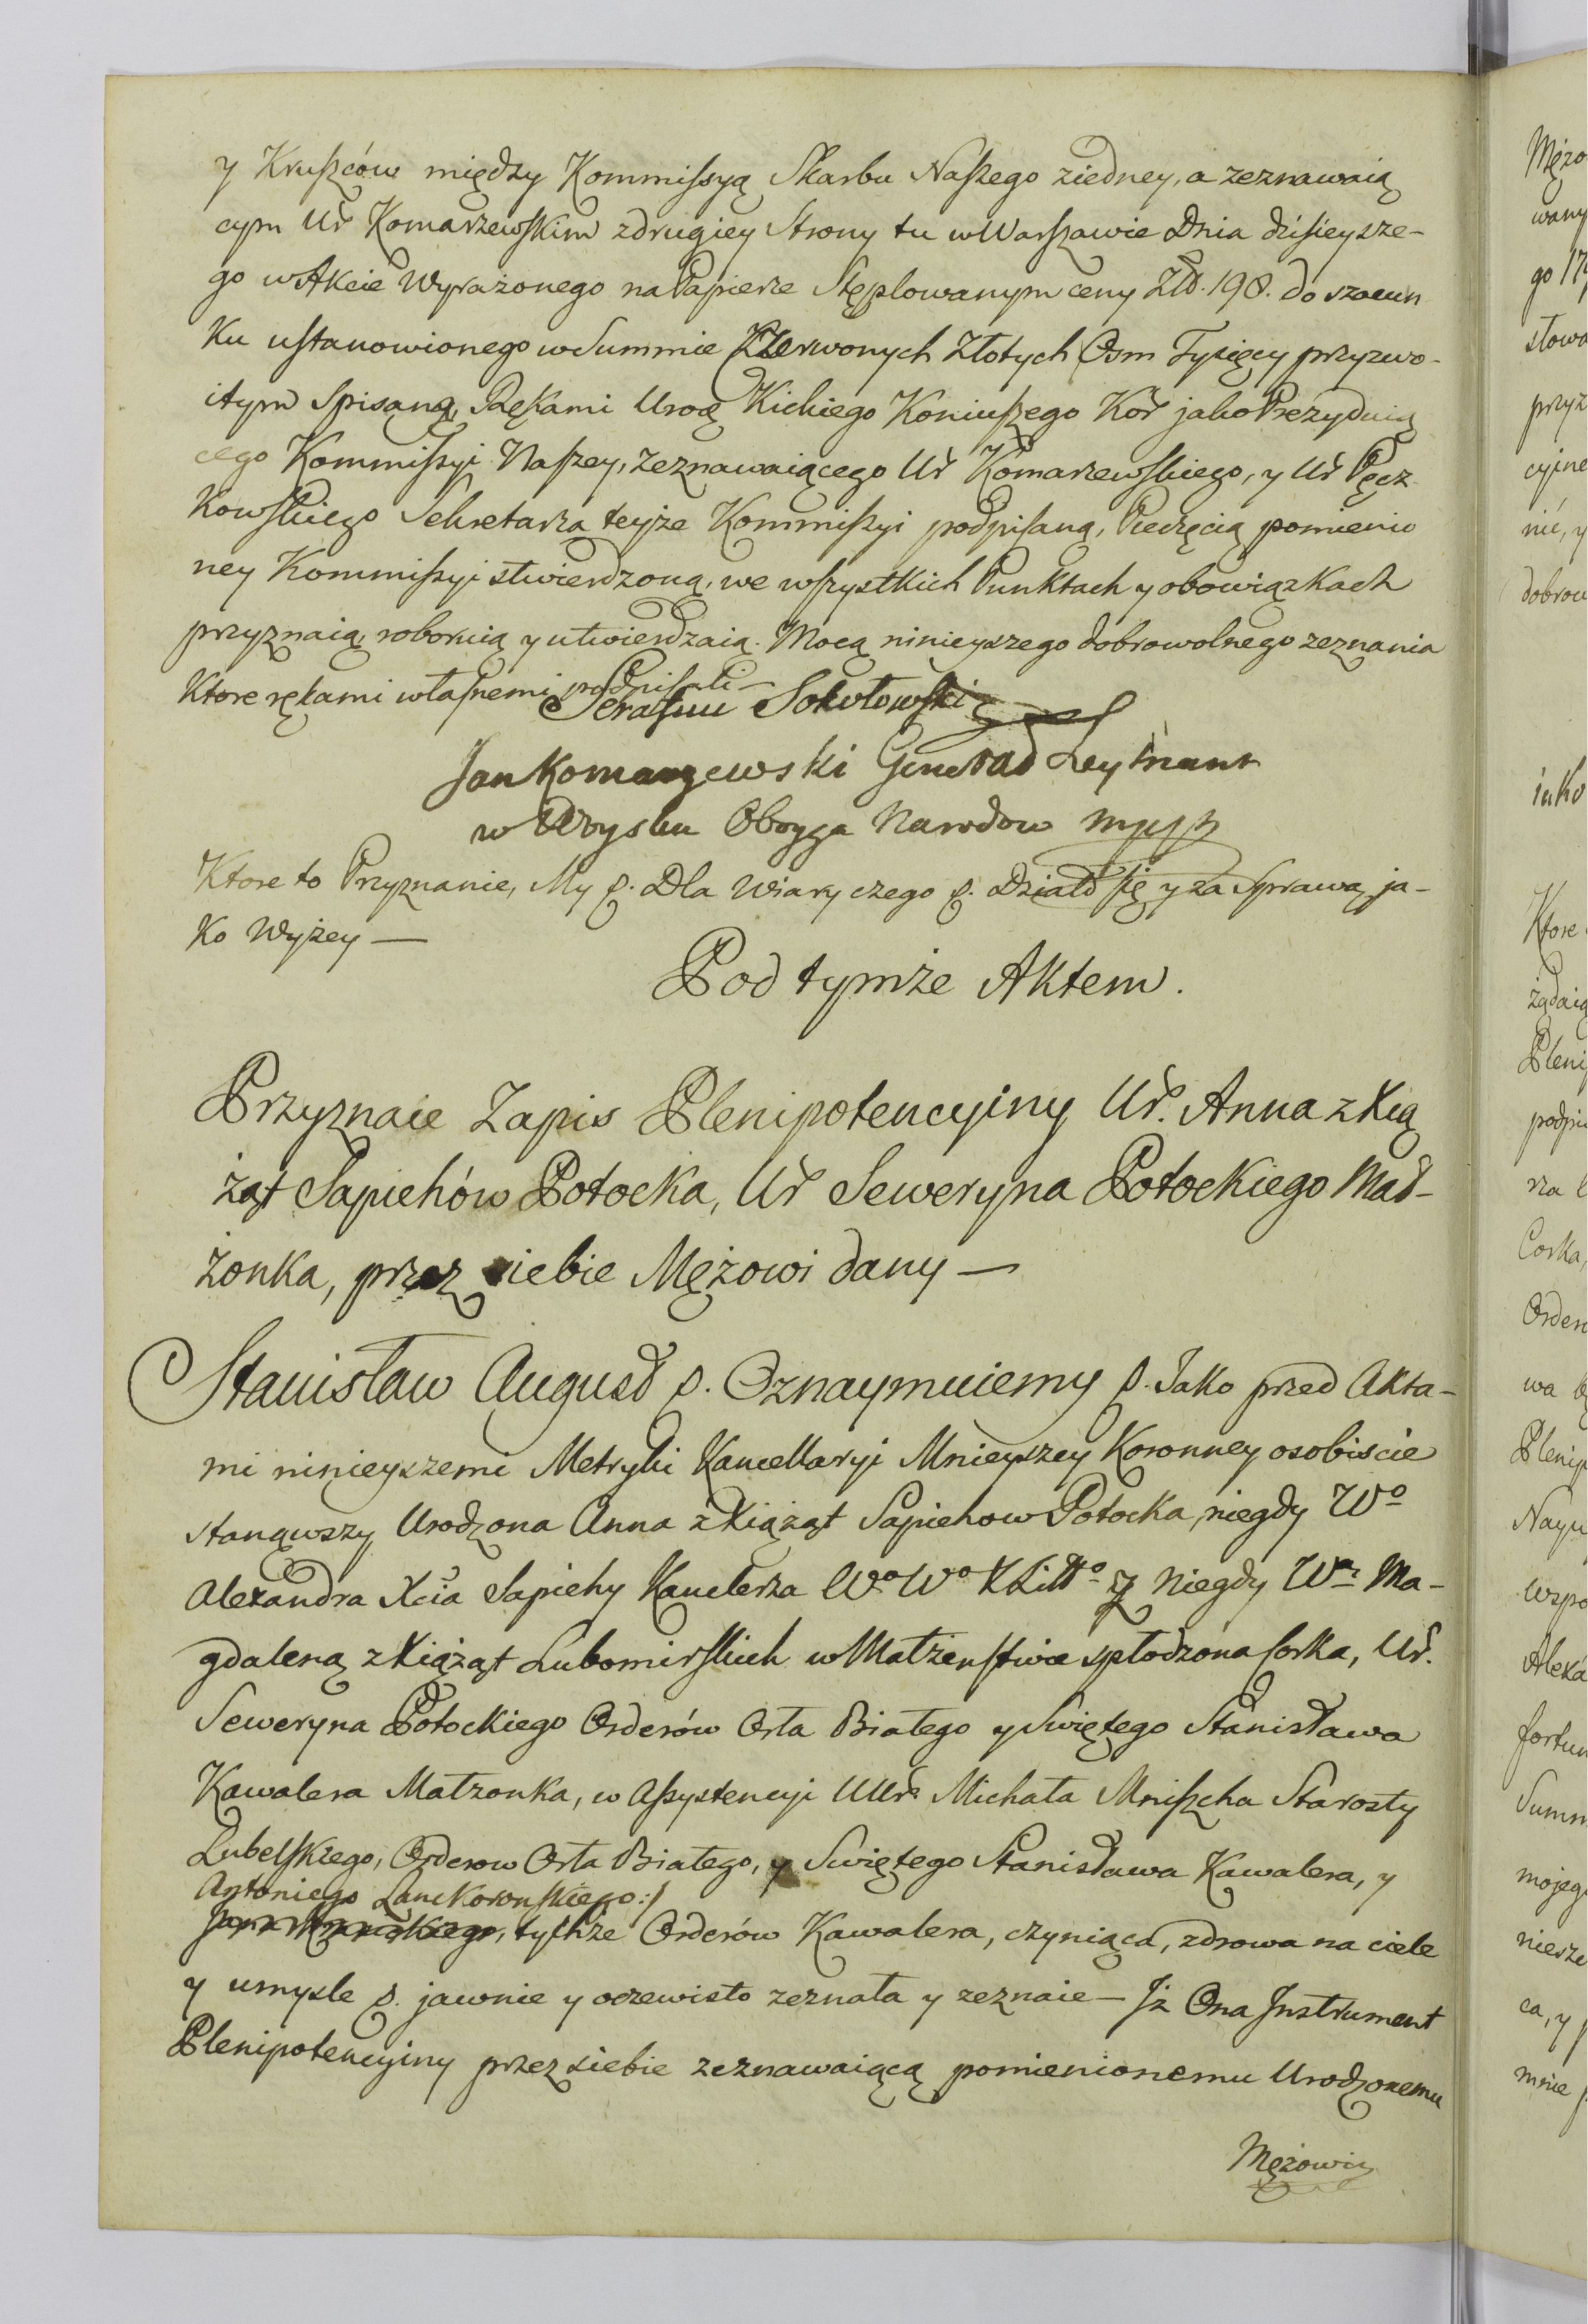 y Kruszców między Kommissyą Skarbu Naszego ziedney, a zeznawaią
cym Ur Komarzewskim zdrugiey Strony tu w Warszawie Dnia dzisieysze-
go w Akcie Wyrażonego na Papierze Stęplowanym ceny Złł. 198. do szacun
Ku ustanowionego w Summie Czerwonych Złotych Osm Tysięcy przyzwo-
itym Spisaną, Rękami Urodę Kickiego Koniuszego Kor jako Prezyduią
cego Kommissyi Naszey, zeznawaiącego Ur Komarzewskiego, y Ur Pęcz
Kowskiego Sekretarza teyże Kommissyi podpisaną, Pieczęcią pomienio
ney Kommissyi stwierdzoną, we wszystkich Punktach y obowiązkach
przyznaią, roboruią y utwierdzaią. Mocą ninieyszego dobrowolnego zeznania
Ktore rękami własnemi podpisali —
Serafin Sokołowski
Jan Komarzewski General Leytnant
w Woysku Oboyga Narodow mpp
Ktore to Przyznanie, My p. Dla Wiary czego p. Działo się y za Sprawą ja-
ko Wyżey —
Pod tymże Aktem.
Przyznaie Zapis Plenipotencyiny Ur. Anna z Xią
żąt Sapiehów Potocka, Ur Seweryna Potockiego Mał-
żonka, przez siebie Mężowi dany —
Stanisław August p. Oznaymuiemy p. Jako przed Akta-
mi ninieyszemi Metryki Kancellaryi Mnieyszey Koronney osobiscie
stanąwszy Urodzona Anna z Xiążąt Sapiehow Potocka, niegdy Wo
Alexandra Xcia Sapiehy Kanclerza Wo Wo X Litto y Niegdy Wy Ma-
gdaleną z Xiążąt Lubomirskich w Małżenstwie spłodzona Corka, Ur.
Seweryna Potockiego Orderów Orła Białego y Swiętego Stanisława
Kawalera Małzonka, w Assystencyi UUr Michała Mniszcha Starosty
Lubelskiego, Orderow Orła Białego, y Swiętego Stanisława Kawalera, y
Antoniego Lanckoronskiego:/
tychże Orderów Kawalera, czyniąca, zdrowa na ciele
y umysle p. jawnie y oczewisto zeznała y zeznaie — Iż Ona Instrument
Plenipotencyiny przez siebie zeznawaiącą pomienionemu Urodzonemu
Mężowi